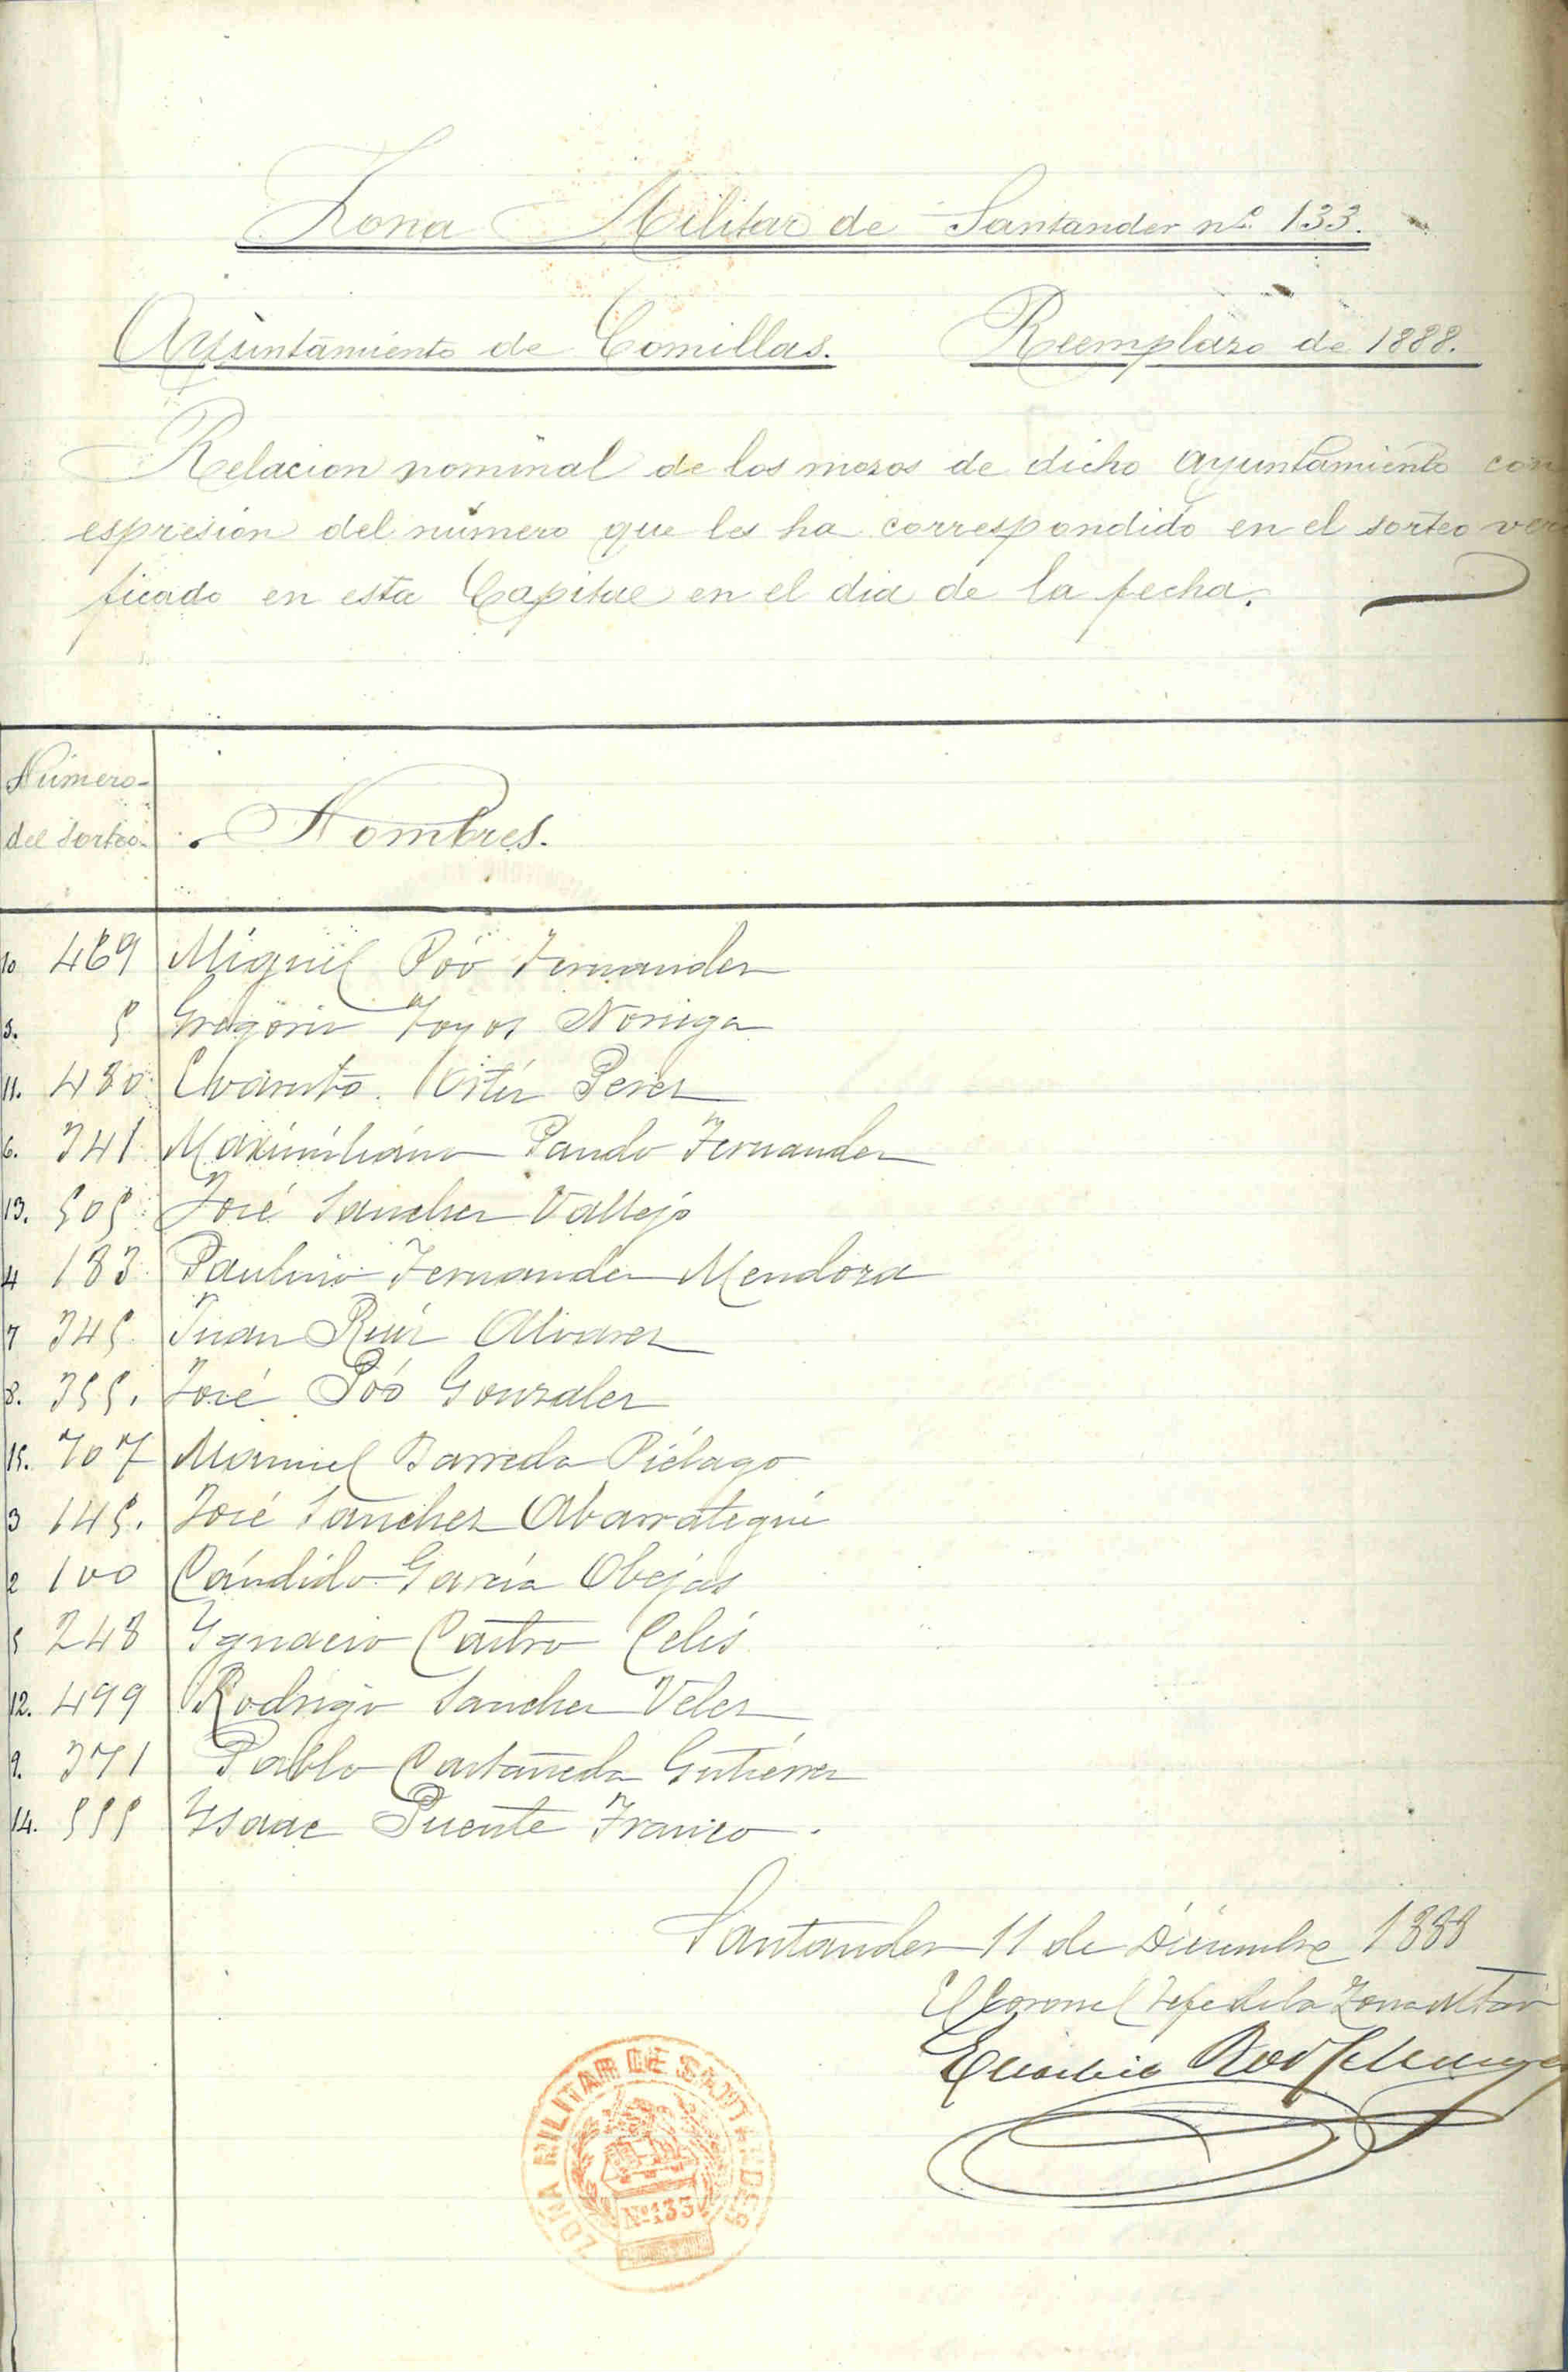 Zona Militar de Santander nº 133.
Ayuntamiento de Comillas. Reemplazo de 1888.
Relacion nominal de los mozos de dicho Ayuntamiento con
espresion del número que les ha correspondido en el sorteo veri
ficado en esta Capital en el dia de la fecha.
Número
del sorteo. Nombres.
10 469 Miguel Póo Fernandez
5 Gregorio Noriega
11. 480 Evaristo Perez
6. 341 Maximiliano Pando Fernandez
13. 505 José Sanchez Vallejo
4 183 Paulino Fernandez Mendoza
7 345. Juan Ruiz Alvarez
8. 355. José Póo Gonzalez
15. 707 Manuel Barreda Piélago
3 145. José Sanchez Abarrategui
2 100 Cándido García Obejas
5 248 Ygnacio Castro Celis
12. 499 Rodrigo Sanchez Velez
9. 371 Pablo Castañeda Gutiérrez
14. 555 Ysaac Puente Franco.
Santander 11 de Diciembre 1888
El Coronel Jefe de la Zona Mtar
Eusebio
ZONA MILITAR DE SANTANDER
Nº 133